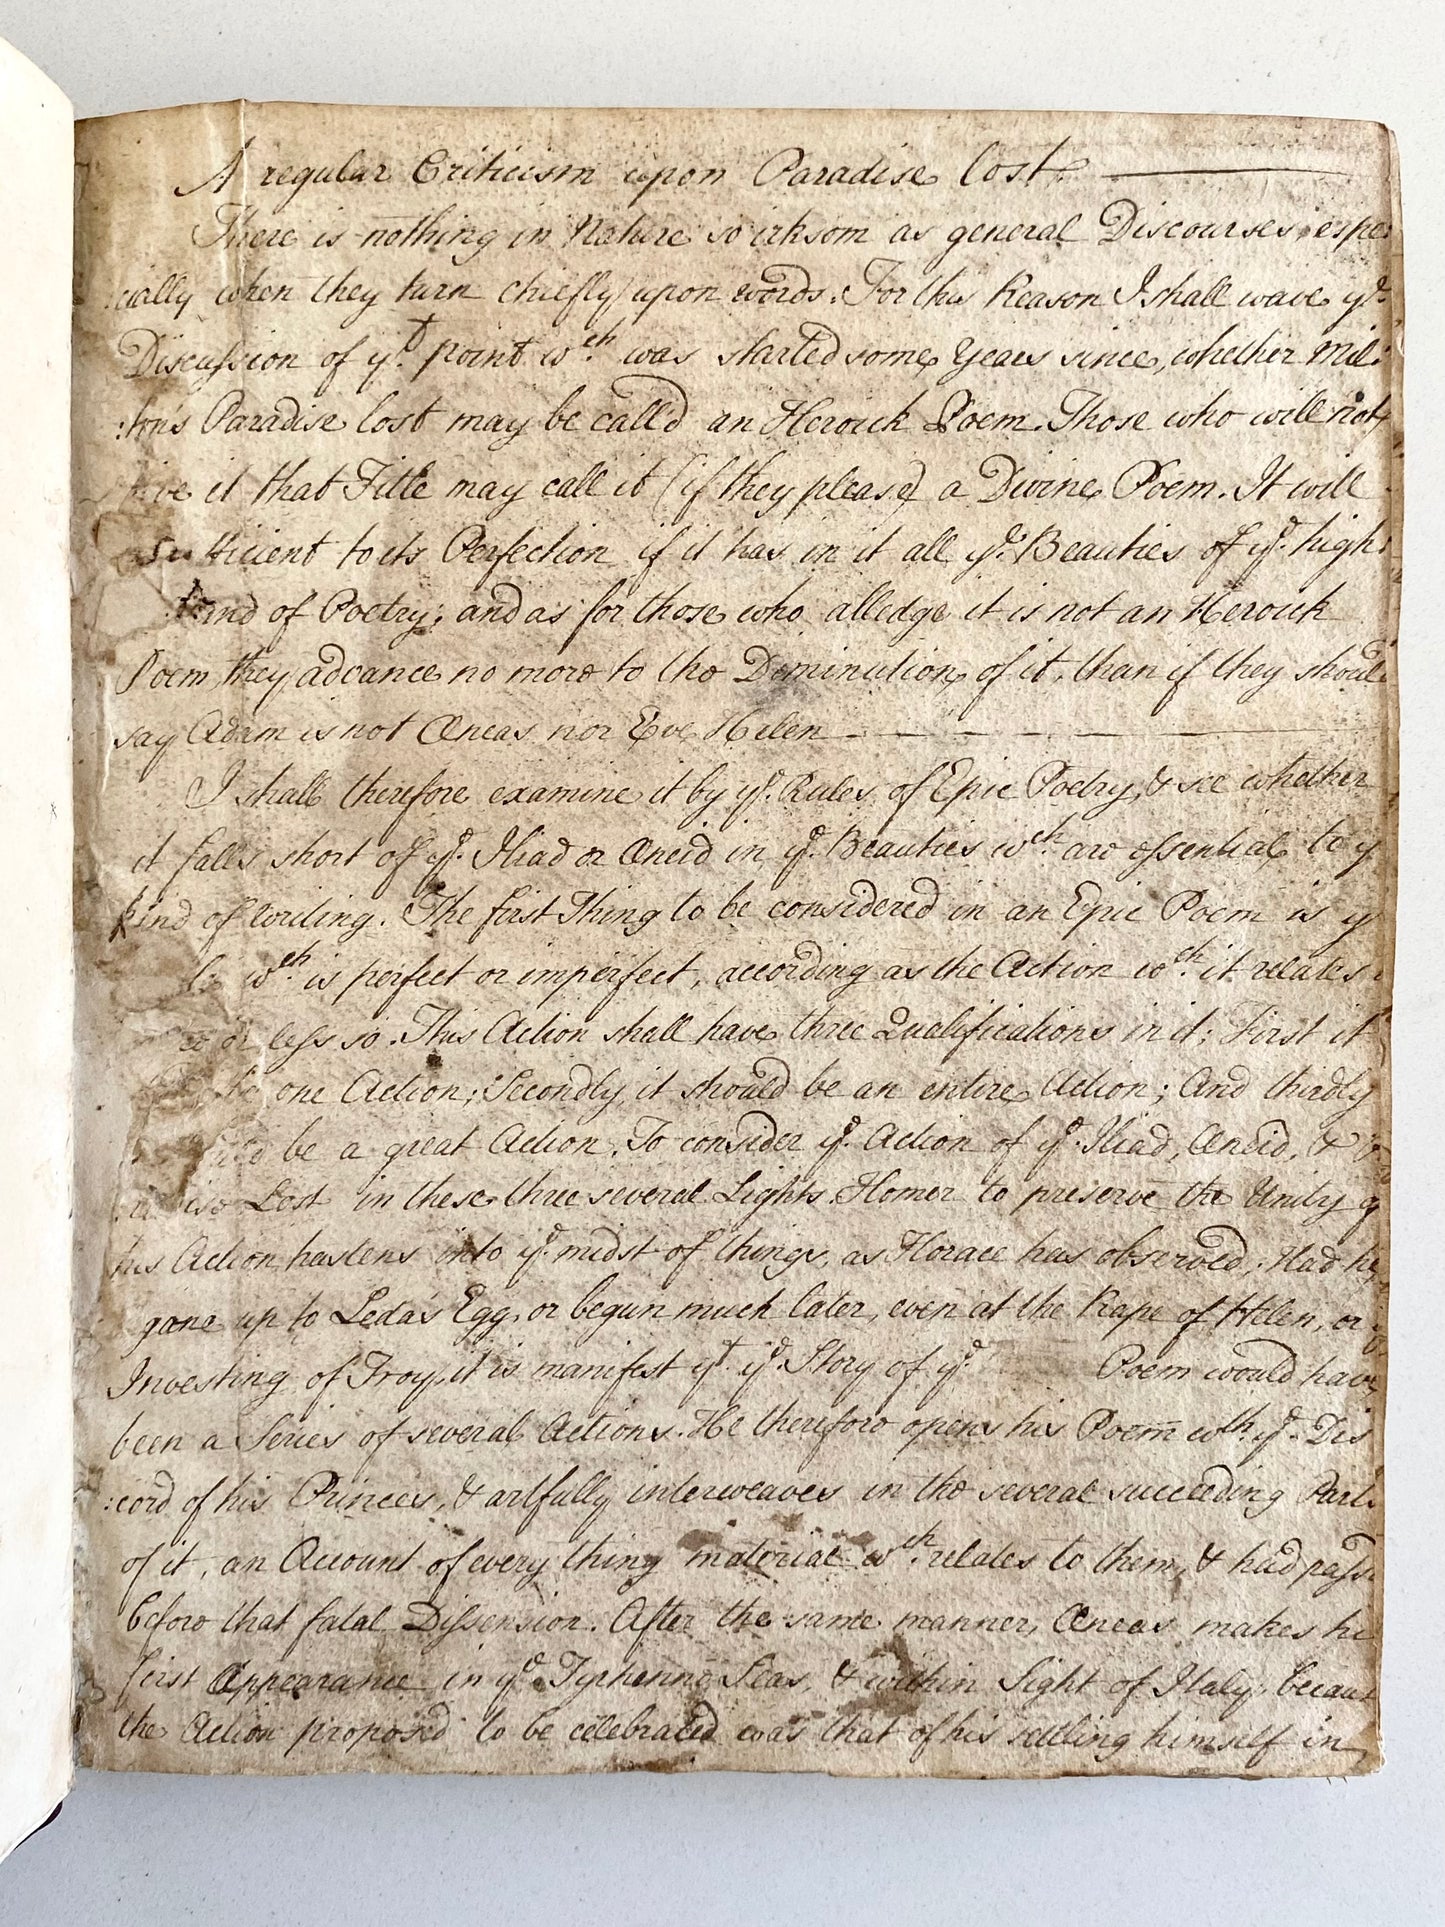 A regular Criticism upon Paradise Lost.
There is nothing in Nature so irksom as general Discourses, espe:
:cially when they turn chiefly upon words: For this Reason I shall wave yᵉ.
Discussion of yᵗ. point wᶜʰ. was started some Years since, whether Mil:
:ton's Paradise Lost may be call'd an Heroick Poem. Those who will not
give it that Title may call it (if they please) a Divine Poem. It will
sufficient to its Perfection if it has in it all yᵉ. Beauties of yᵉ. high:
kind of Poetry; and as for those who alledge it is not an Heroick
Poem, they advance no more to the Diminution of it, than if they should
say Adam is not Æneas nor Eve Helen
I shall therefore examine it by yᵉ. Rules of Epic Poetry, & see whether
it falls short of yᵉ. Iliad or Æneid in yᵉ. Beauties wᶜʰ. are essential to y
kind of Writing. The first Thing to be considered in an Epic Poem is y
wᶜʰ. is perfect or imperfect, according as the Action wᶜʰ. it relates
or less so. This Action shall have three Qualifications in it; First it
one Action; Secondly, it should be an entire Action; And thirdly
be a great Action. To consider yᵉ. Action of yᵉ. Iliad, Æneid, &
Lost in these three several Lights. Homer to preserve the Unity
his Action hastens into yᵉ. midst of things, as Horace has observed; Had he
gone up to Leda's Egg, or begun much later, even at the Rape of Helen, or
Investing of Troy, it is manifest yᵗ yᵉ. Story of yᵉ. Poem would have
been a Series of several Actions. He therefore opens his Poem wᵗʰ. yᵉ. Dis
:cord of his Princes, & artfully interweaves in the several succeeding Parts
of it, an Account of every thing material wᶜʰ. relates to them, & had pass
before that fatal Dissension. After the same manner, Æneas makes hi
first Appearance in yᵉ. Tyrhenne Seas, & within Sight of Italy, becaus
the Action proposed to be celebrated was that of his settling himself in